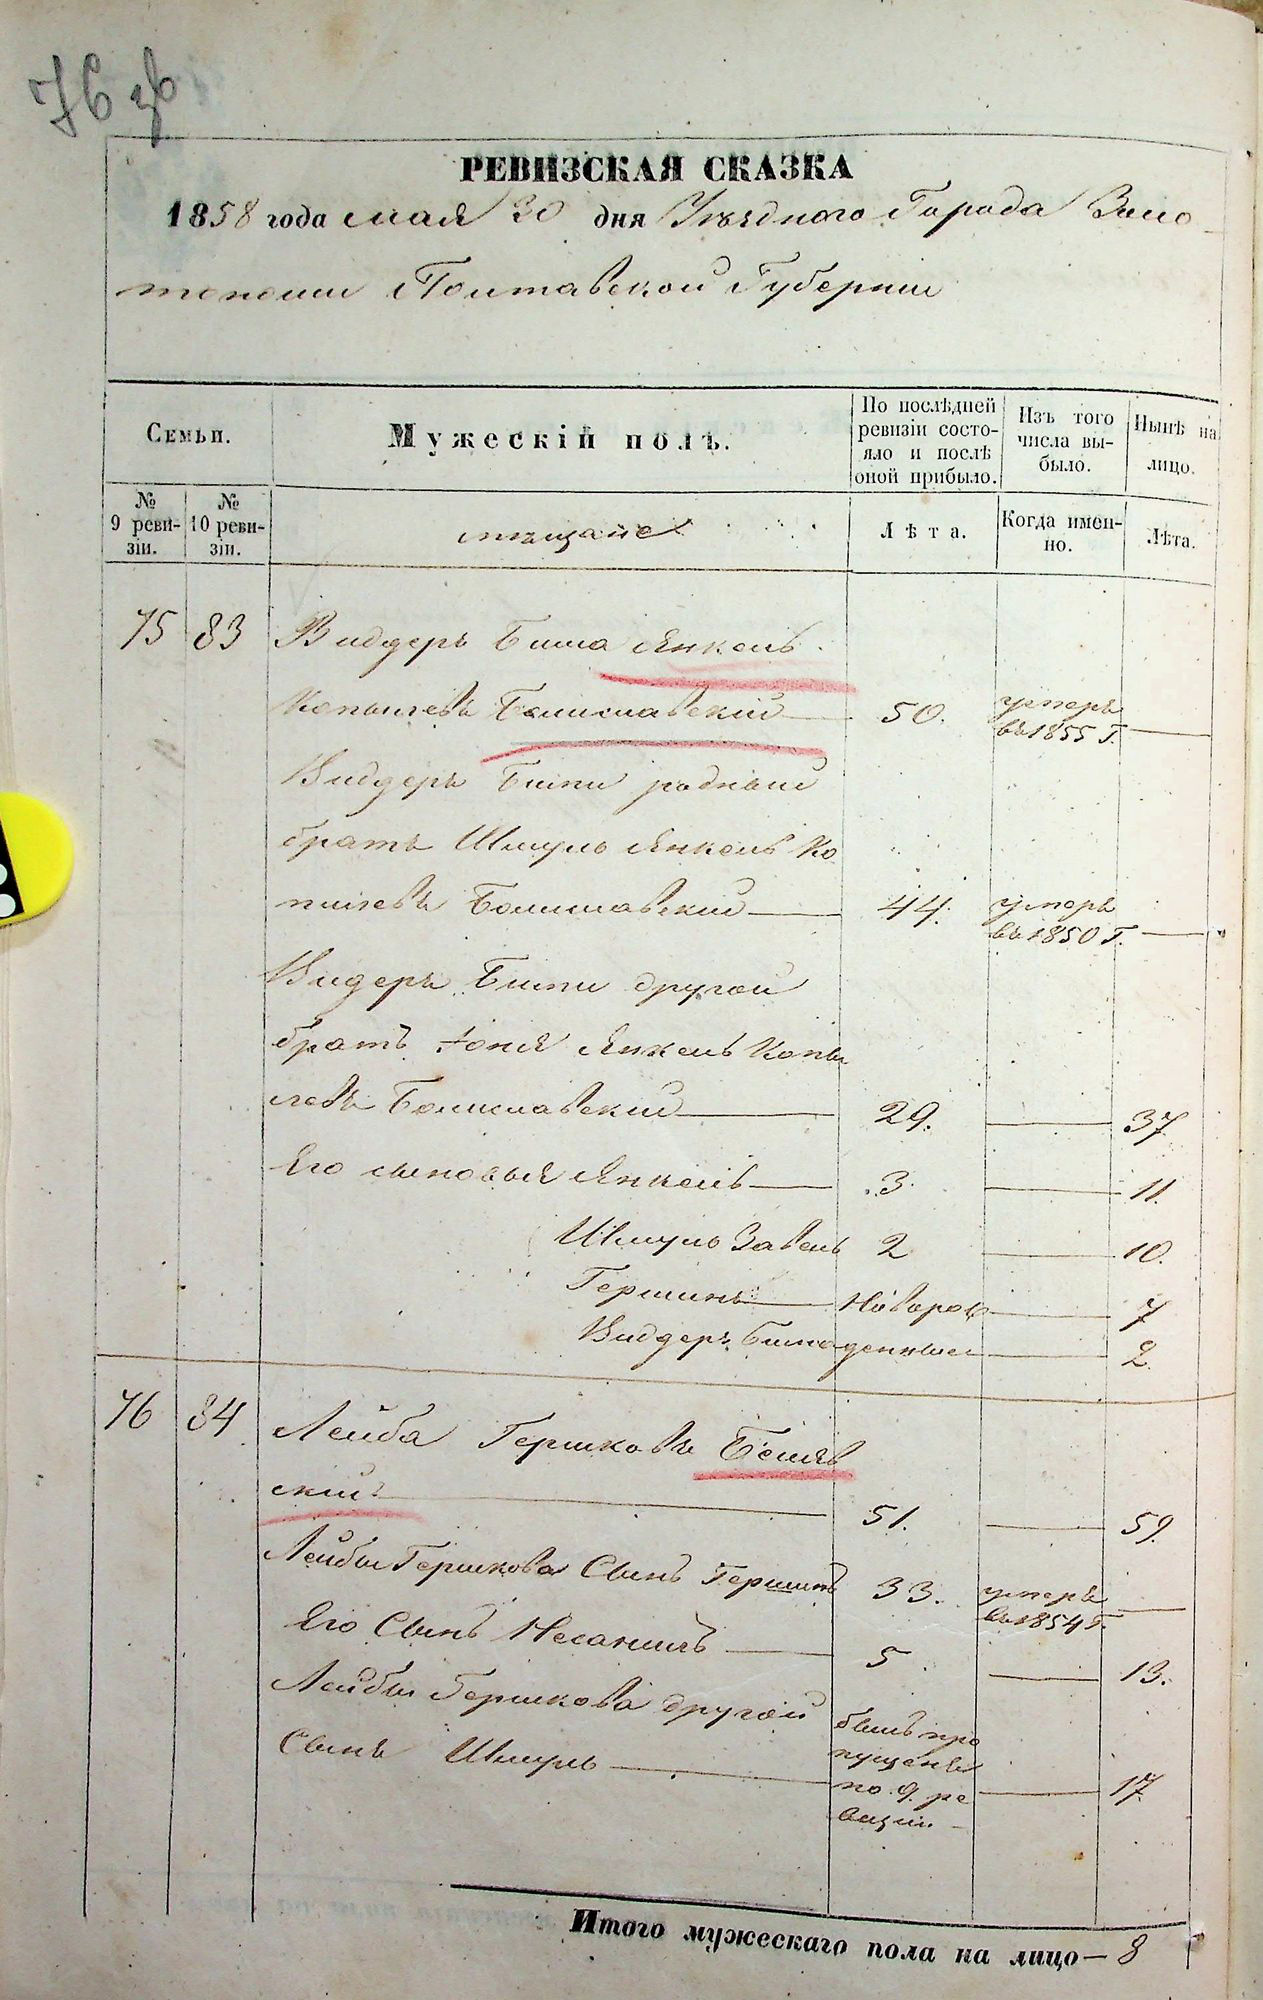 76 зв
РЕВИЗСКАЯ СКАЗКА
1858 года мая 30 дня Уѣзднаго Города Золо
тоноши Полтавской Губерніи
Семьи.
Мужескій полъ.
По послѣдней ревизіи состояло и послѣ оной прибыло.
Изъ того числа выбыло.
Нынѣ на лицо.
№ 9 ревизіи.
№ 10 ревизіи.
мѣщане
Лѣта.
Когда именно.
Лѣта.
75 83 Видгеръ Биша Янкель
Копылевъ Болиславский 50. умеръ въ 1855 г.
Видгеръ Биши родный
братъ Шмуль Янкель Ко
пилевъ Болиславский 44. умеръ въ 1850 г.
Видгеръ Биши другой
братъ Іоня Янкель Копы
левъ Болиславский 29. 37
Его сыновья Янкель 3. 11.
Шмуль Завель 2 10.
Гершинъ Новорож 7
Видгеръ Биша денные 2.
76 84 Лейба Гершковъ Беляв
ский 51. 59.
Лейбы Гершкова Сынъ Гершинъ 33. умеръ въ 1854 г.
Его Сынъ Несанилъ 5 13.
Лейбы Гершкова другой
Сынъ Шмуль былъ про
пущенъ
по 9 ре 17
визіи.
Итого мужескаго пола на лицо— 8